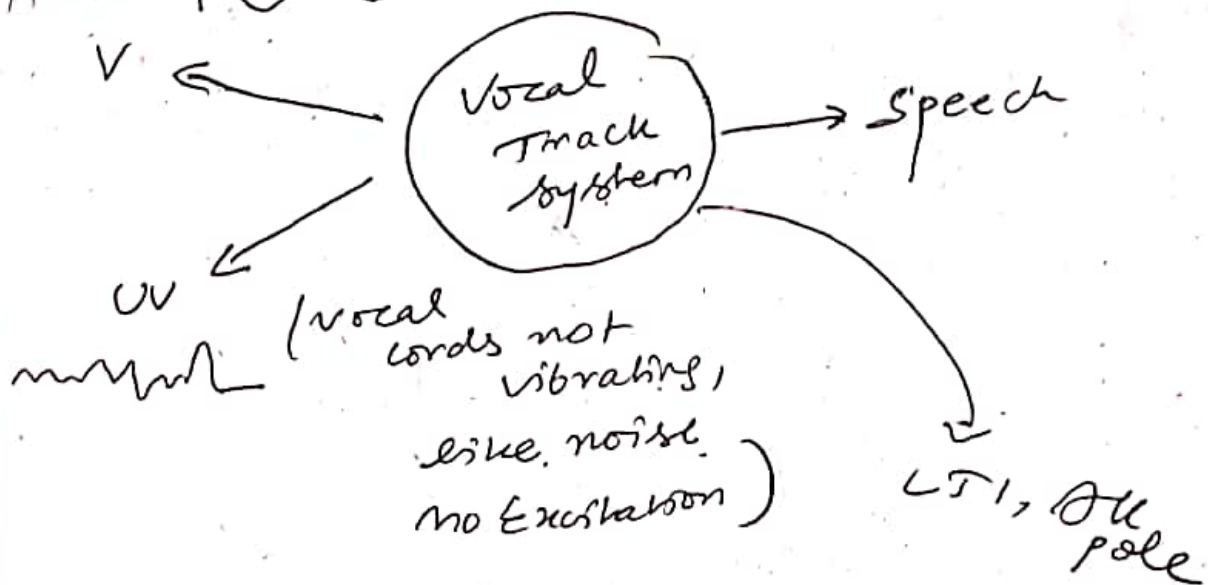 V
Vocal
Track
system
Speech
UV
(vocal
cords not
vibrating,
like noise
no Excitation)
LTI, All
pole